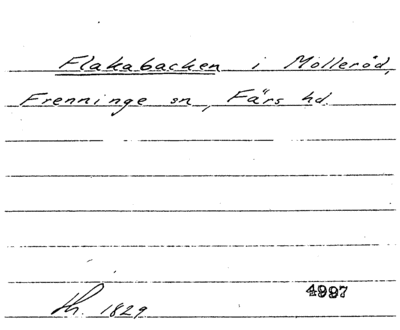 Flakabacken i Mölleröd,
Frenninge sn, Färs hd.
4997
Th. 1829